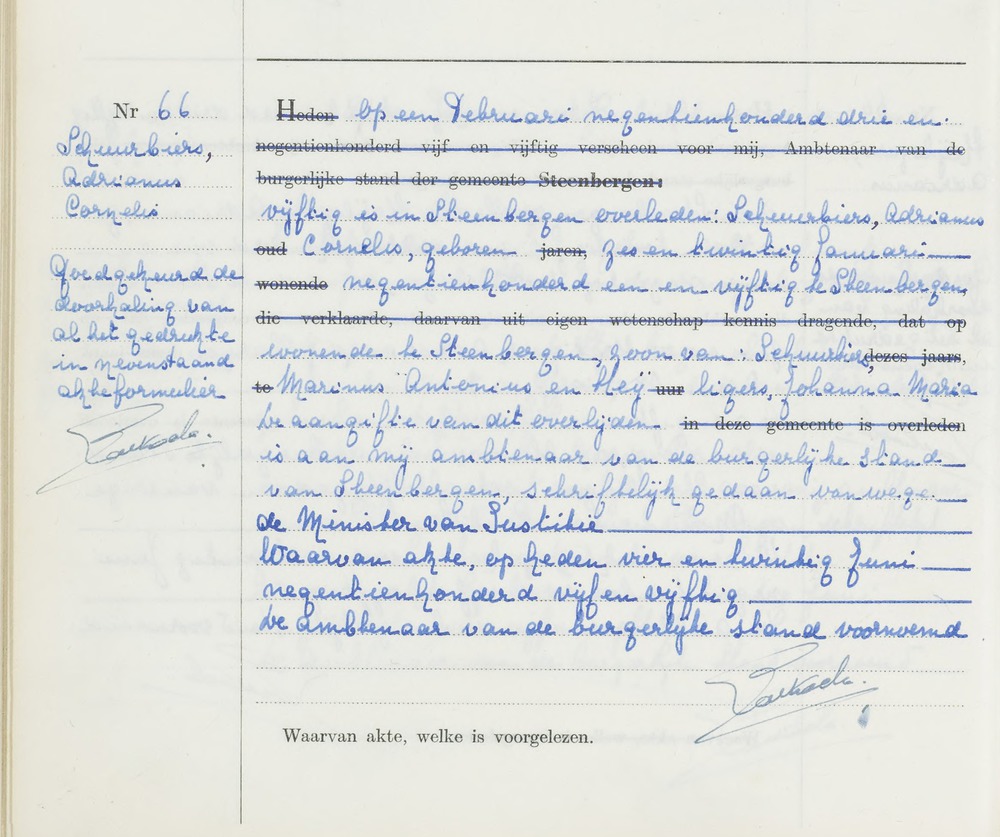 Nr 66
Scheurbiers,
Adrianus
Cornelis
Goedgekeurd de
doorhaling van
al het gedrukte
in nevenstaand
akteformulier
Heden Op een Februari negentienhonderd drie en
negentienhonderd vijf en vijftig verscheen voor mij, Ambtenaar van de
burgerlijke stand der gemeente Steenbergen:
vijftig is in Steenbergen overleden: Scheurbiers, Adrianus
oud Cornelis, geboren jaren, zes en twintig Januari
wonende negentienhonderd een en vijftig te Steenbergen,
die verklaarde, daarvan uit eigen wetenschap kennis dragende, dat op
wonende te Steenbergen, zoon van: Scheurbiers, dezes jaars,
te Marinus Antonius en Heij uur ligers, Johanna Maria
De aangifte van dit overlijden in deze gemeente is overleden
is aan mij ambtenaar van de burgerlijke stand
van Steenbergen, schriftelijk gedaan vanwege
de Minister van Justitie
Waarvan akte, op heden vier en twintig Juni
negentienhonderd vijf en vijftig
De ambtenaar van de burgerlijke stand voornoemd
Waarvan akte, welke is voorgelezen.